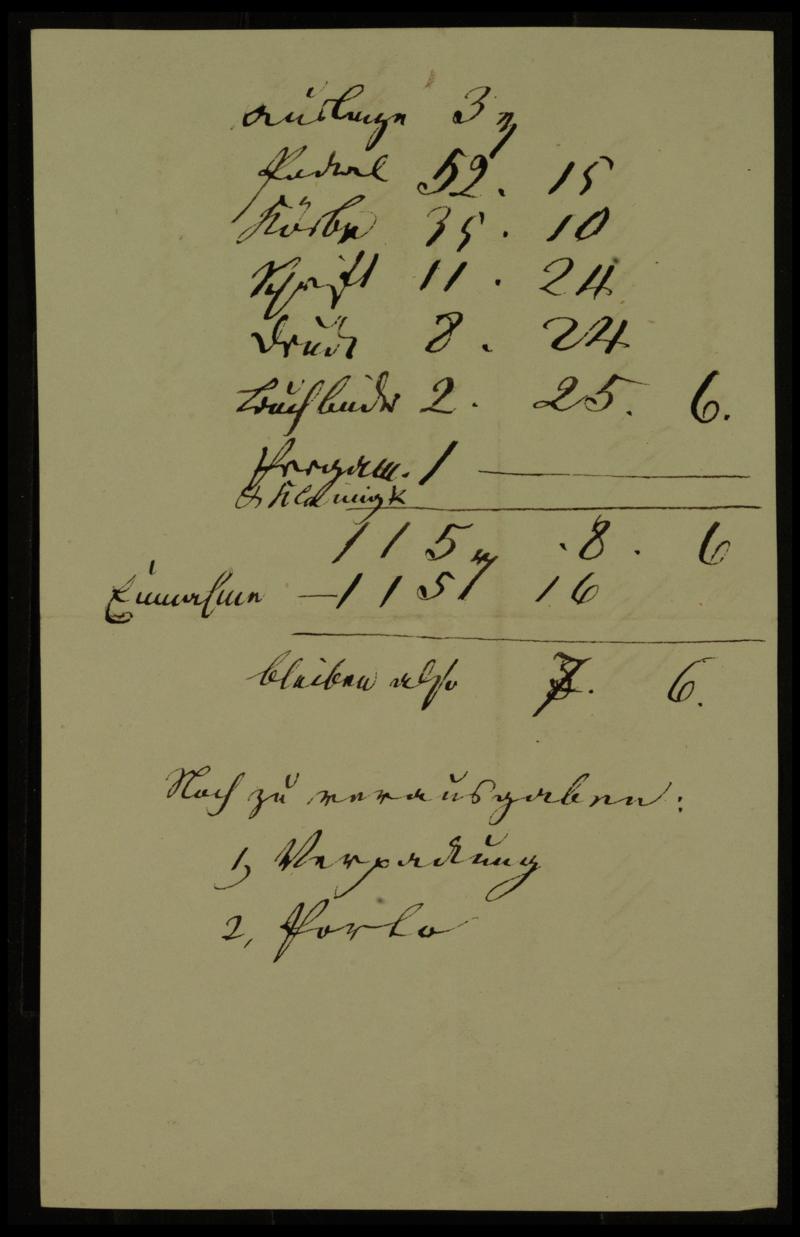 Auslage 3
Pockal 52. 15
Körbe 35. 10
Schrift 11. 24
Druck 8. 24
Buchbinder 2. 25. 6.
Pergam. 1 —
& Kleinigk
115 . 8. 6
Einnahme — 115 16
bleiben also 7. 6.
Noch zu verausgaben:
1, Verpackung
2, Porto